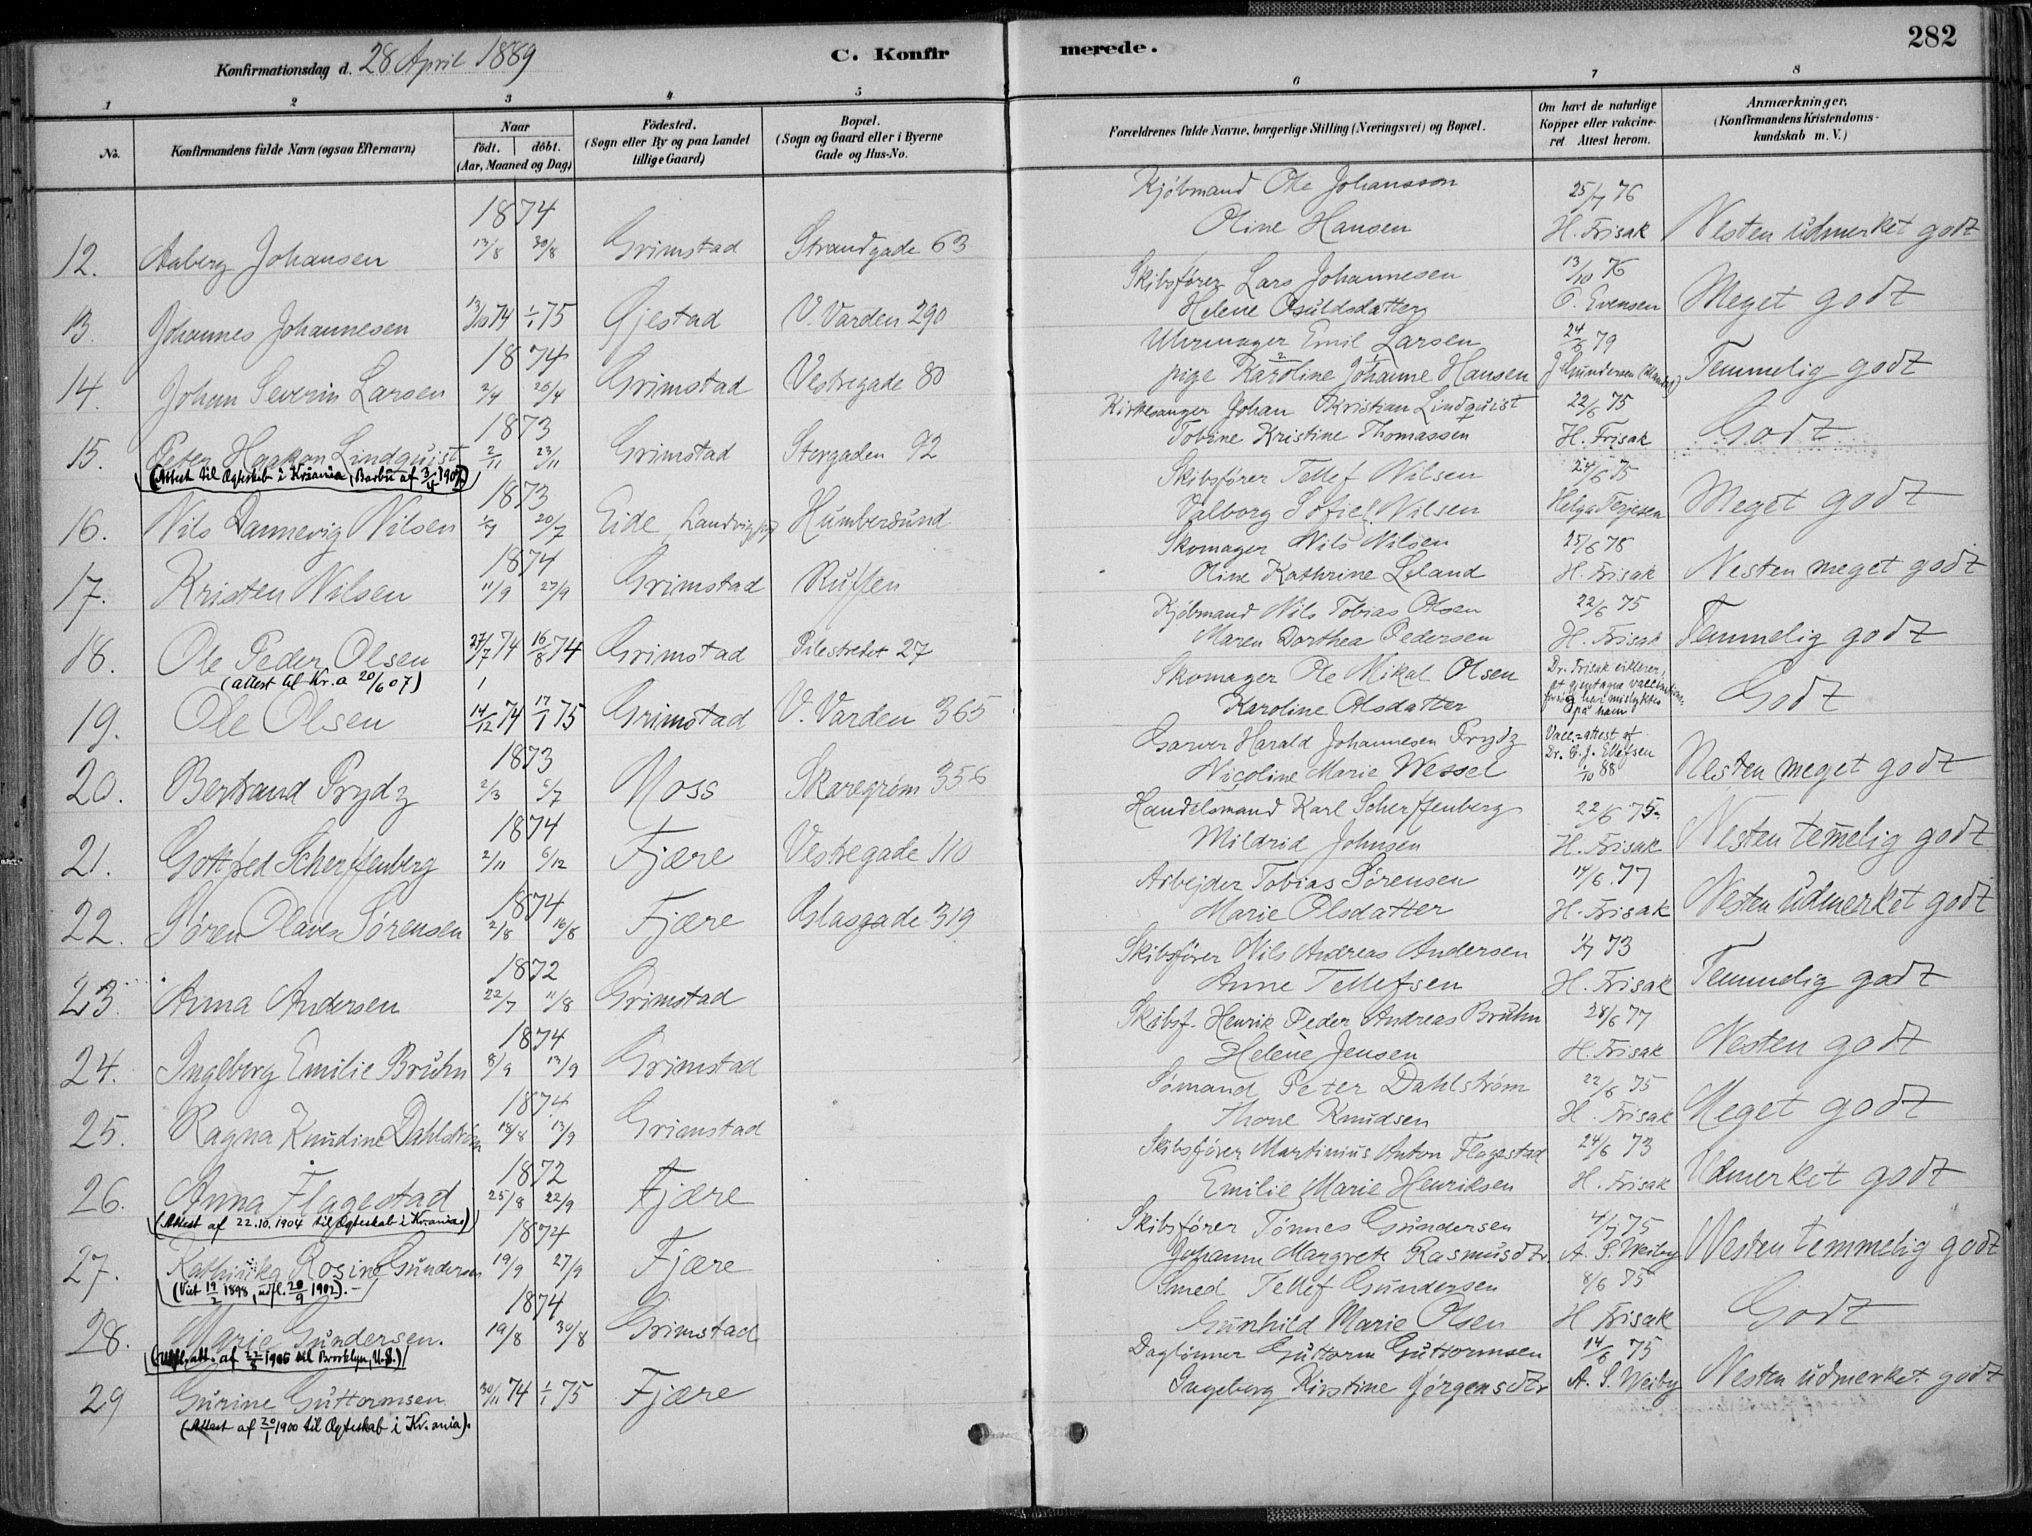 282
Konfirmationsdag d. 28 April 1889
C. Konfirmerede.
1 2 3 4 5 6 7 8
No.
Konfirmandens fulde Navn (ogsaa Efternavn)
Naar
født. døbt.
(Aar, Maaned og Dag)
Fødested.
(Sogn eller By og paa Landet
tillige Gaard)
Bopæl.
(Sogn og Gaard eller i Byerne
Gade og Hus-No.
Forældrenes fulde Navne, borgerlige Stilling (Næringsvei) og Bopæl.
Om havt de naturlige
Kopper eller vakcine-
ret Attest herom.
Anmærkninger,
(Konfirmandens Kristendoms-
kundskab m. V.)
1874 Kjøbmand Ole Johansson 25/7 76
12. Aaberg Johansen 13/8 30/8 Grimstad Strandgade 63 Oline Hansen H. Frisak Nesten udmerket godt
Skibsfører Lars Johannesen 13/10 76
13. Johannes Johannesen 13/10 74 1/1 75 Gjestad V. Varden 290 Helene Osuldsdatter O. Evensen Meget godt
1874 Uhrmager Emil Larsen 24/6 79
14. Johan Severin Larsen 2/4 25/4 Grimstad Vestregade 80 pige Karoline Johanne Hansen J Gundersen Temmelig godt
1873 Kirkesanger Johan Kristian Lindquist 22/6 75
15. Peter Haakon Lindquist 2/11 23/11 Grimstad Storgaden 92 Tobine Kristine Thomassen H. Frisak Godt
(Attest til Ægteskab i Kr.ania, Barbu af 3/4 1907)
1873 Skibsfører Tellef Nilsen 24/6 75
16. Nils Dannevig Nilsen 20/7 Eide, Landvig Humbersund Valborg Sofie Nilsen Helga Terjesen Meget godt
1874 Skomager Nils Nilsen 25/6 78
17. Kristen Nilsen 11/9 27/9 Grimstad Ruffen Oline Kathrine Leland H. Frisak Nesten meget godt
Kjøbmand Nils Tobias Olsen 22/6 75
18. Ole Peder Olsen 27/7 74 16/8 74 Grimstad Pilestredet 27 Maren Dorthea Pedersen H. Frisak Temmelig godt
(attest til Kr.a 20/6 07)
Skomager Ole Mikal Olsen Dr. Frisak erklærer,
at gjentagne vaccinations-
19. Ole Olsen 14/12 74 17/1 75 Grimstad V. Varden 365 Karoline Olsdatter forsøg har mislykkets Godt
på ham
1873 Garver Harald Johannesen Prydz Vacc.-attest af
Dr. E. J. Ellefsen
20. Bertrand Prydz 2/3 5/7 Moss Skaregrøm 356 Nicoline Marie Wessel 1/10 88 Nesten meget godt
1874 Handelsmand Karl Scherffenberg 22/6 75
21. Gottfred Scherffenberg 2/11 6/12 Fjære Vestregade 110 Mildrid Johnsen H. Frisak Nesten temelig godt
1874 Arbejder Tobias Sørensen 14/6. 77
22. Søren Olaves Sørensen 2/8 16/8 Fjære Glasgade 319 Marie Olsdatter H. Frisak Nesten udmerket godt
1872 Skibsfører Nils Andreas Andersen 1/7 73
23. Anna Andersen 22/7 11/8 Grimstad Anne Tellefsen H. Frisak Temmelig godt
1874 Skibsf. Henrik Peder Andreas Bruhn 28/6 77
24. Ingeborg Emilie Bruhn 8/9 13/9 Grimstad Helene Jensen H. Frisak Nesten godt
1874 Sømand Peter Dahlstrøm 22/6 75
25. Ragna Knudine Dahlstrøm 18/8 13/9 Grimstad Thone Knudsen H. Frisak Meget godt
1872 Skibsfører Martinius Anton Flagestad 24/6 73
26. Anna Flagestad 25/8 22/9 Fjære Emilie Marie Henriksen H. Frisak Udmerket godt
(Attest af 22.10.1904 til Ægteskab i Kr.ania)
1874 Skibsfører Tønnes Gundersen 4/7 75
27. Kathinka Rosine Gundersen 19/9 27/9 Fjære Johanne Margrete Rasmusdtr A. S. Weiby Nesten temmelig godt
(Viet 19/2 1898, udfl. 20/9 1902).
1874 Smed Tellef Gundersen 8/6 75
28. Marie Gundersen. 19/8 30/8 Grimstad Gunhild Marie Olsen H Frisak Godt
(Udfl.att. af 22/8 1905 til Brooklyn, U.S.)
Dagtønner Guttorm Guttormsen 14/6 75
29 Gurine Guttormsen 30/11 74 1/1 75 Fjære Ingeborg Kirstine Jørgensdtr A. S. Weiby Nesten udmerket godt
(Attest af 20/1 1900 til Ægteskab i Kr.ania).